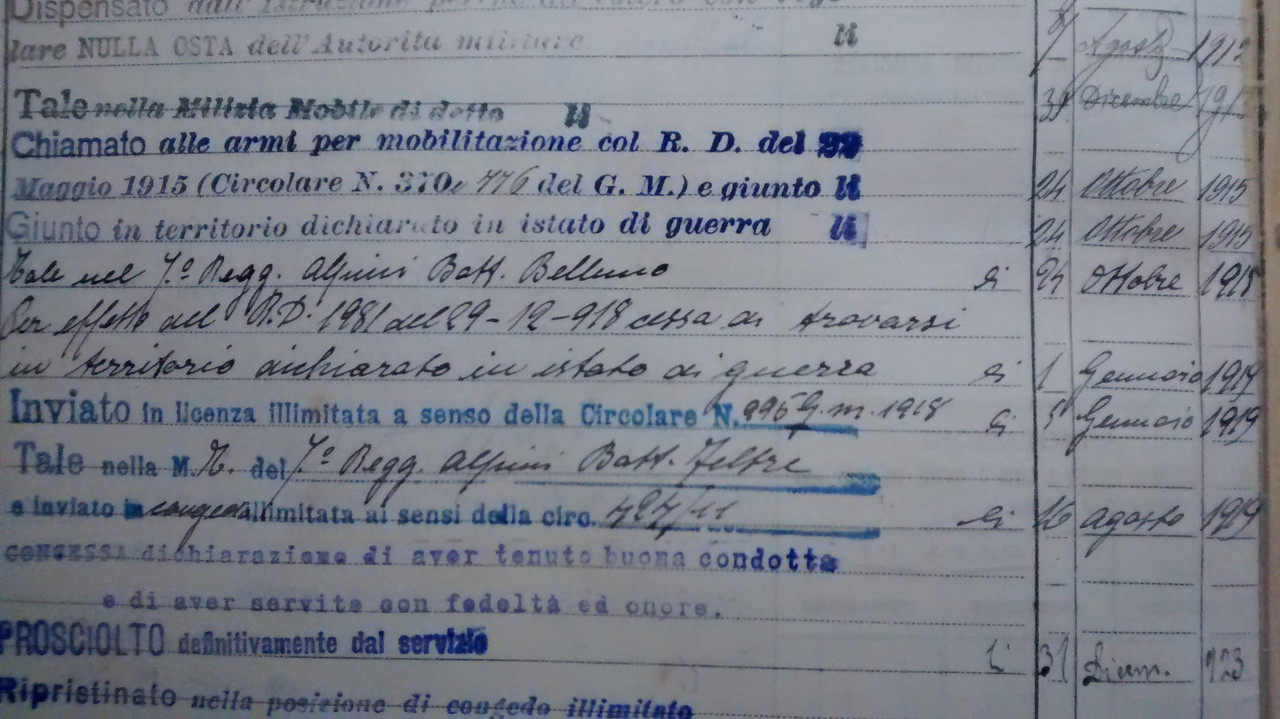 Dispensato dall'istruzione perchè
lare NULLA OSTA dell'Autorità militare li Agosto 1912
Tale nella Milizia Mobile di detto li 31 Dicembre 191
Chiamato alle armi per mobilitazione col R. D. del 22
Maggio 1915 (Circolare N. 370 e 776 del G. M.) e giunto li 24 Ottobre 1915
Giunto in territorio dichiarato in istato di guerra li 24 Ottobre 1915
Tale nel 7º Regg. Alpini Batt. Belluno li 24 Ottobre 1915
Per effetto del R.D. 1981 del 29-12-918 cessa di trovarsi
in territorio dichiarato in istato di guerra li 1 Gennaio 1919
Inviato in licenza illimitata a senso della Circolare N. 995 G.M. 1918 li 5 Gennaio 1919
Tale nella M.T. del 7º Regg. Alpini Batt. Feltre
e inviato in congedo illimitata ai sensi della circ. li 16 agosto 1919
CONCESSA dichiarazione di aver tenuto buona condotta
e di aver servito con fedeltà ed onore.
PROSCIOLTO definitivamente dal servizio li 31 Dicem. 923
Ripristinato nella posizione di congedo illimitato